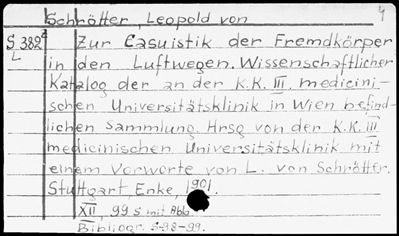 Schrötter, Leopold von 4
S 382² Zur Casuistik der Fremdkörper
L in den Luftwegen. Wissenschaftlicher
Katalog der an der K.K. III. medicini-
schen Universitätsklinik in Wien befind-
lichen Sammlung. Hrsg von der K.K. III
medicinischen Universitätsklinik mit
einem Vorworte von L. von Schrötter.
Stuttgart, Enke, 1901.
XII, 99 S mit Abb
Bibliogr. S 98-99.